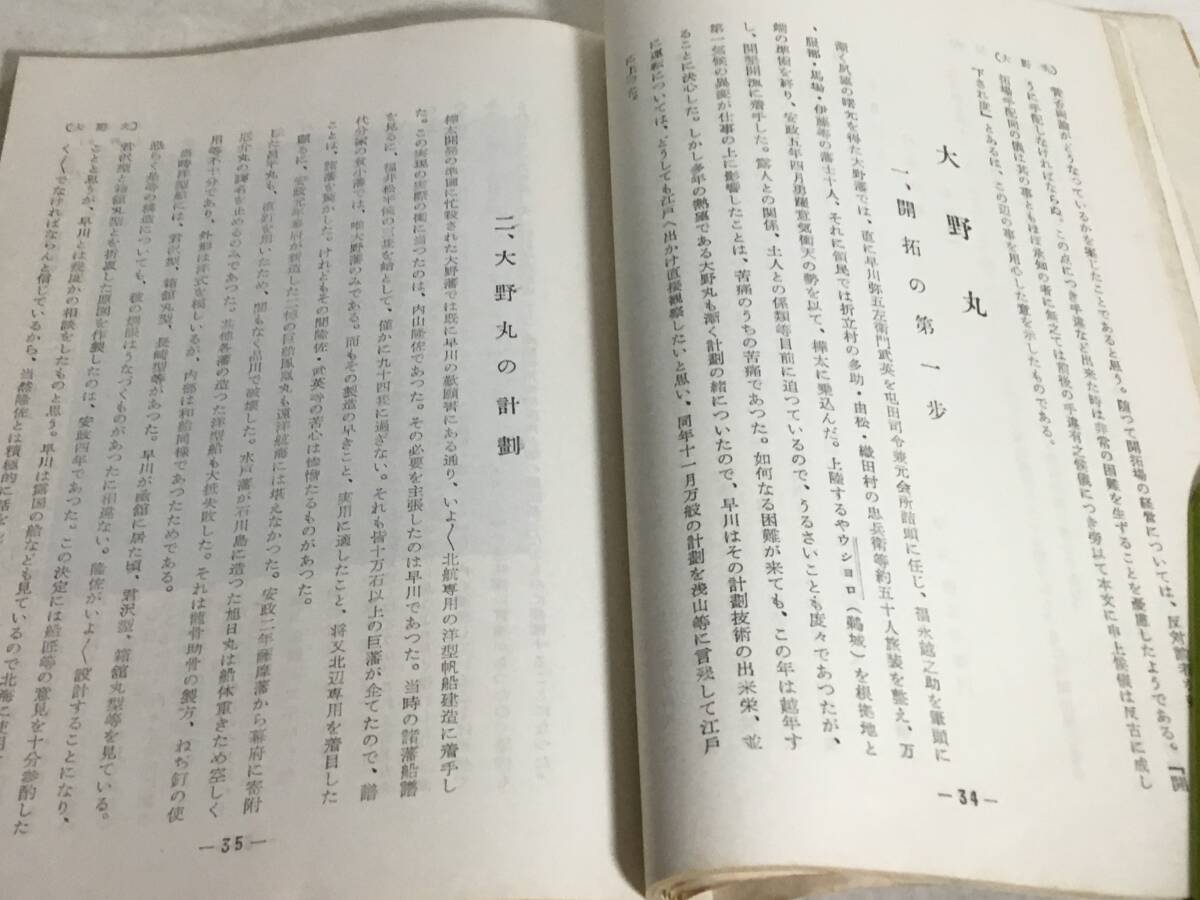 (大野丸)
うに手配しなければならぬ。この点につき手違など出来た時は非常の困難を生ずることを憂慮したようである。「開
拓場手配同の儀は其の事ともほぼ承知の者に無之ては前後の手違有之候儀につき旁以て本文に申上候儀は反古に成し
下され度」とあるは、この辺の事を用心した意を示したものである。
大野丸
一、開拓の第一歩
漸く夙願の曙光を得た大野藩では、直に早川弥五左衛門武英を屯田司令兼元会所諸頭に任じ、福永越之助を筆頭に
、服部・馬場・伊藤等の藩士十人、それに領民では折立村の多助・由松・織田村の忠兵衛等約五十人旅装を整え、万
端の準備を終り、安政五年四月勇躍意気衝天の勢を以て、樺太に乗込んだ。上陸するやウショロ(鵜城)を根拠地と
し、開墾開漁に着手した。露人との関係、土人との係類等目前に迫つているので、うるさいことも度々であつたが、
第一気候の異変が仕事の上に影響したことは、苦痛のうちの苦痛であつた。如何なる困難が来ても、この年は越年す
ることに決心した。しかし多年の熱願である大野丸も漸く計劃の緒についたので、早川はその計劃技術の出来栄、並
に運転については、どうしても江戸へ出かけ直接観察したいと思い、同年十一月万般の計劃を浅山等に言残して江戸
に上つた。
—34—
二、大野丸の計劃
樺太開易の準備に忙殺された大野藩では既に早川の歎願書にある通り、いよ〱北航専用の洋型帆船建造に着手し
た。この実現の実際の衝に当つたのは、内山隆佐であつた。その必要を主張したのは早川であつた。当時の諸藩船譜
を見るに、福井松平侯の二隻を始として、僅かに九十四隻に過ぎない。それも皆十万石以上の巨藩が企てたので、譜
代分家の貧小藩では、唯大野藩のみである。而もその製造の早きこと、実用に適したこと、将又北辺専用を着目した
ことは、諸藩を驚かした。けれどもその間隆佐、武英等の苦心は惨憺たるものがあつた。
顧るに、安政元年幕府が新造した二檣の巨船鳳凰丸も遠洋航海には堪えなかつた。安政二年薩摩藩から幕府に寄附
した昌平丸も、直釘を用いたため、間もなく品川で破壊した。水戸藩が石川島に造つた旭日丸は船体重きため空しく
厄介丸の諢名を止めるのみであつた。其他各藩の造つた洋型船も大抵失敗した。それは龍骨助骨の製方、ねぢ釘の使
用等不十分であり、外形は洋式を模しいるが、内部は和船同様であつたためである。
当時洋型船には、君沢型、箱館丸型、長崎型等があつた。早川が函館に居た頃、君沢型、箱館丸型等を見ている。
恐らく是等の構造についても、彼の烱眼はうなづくものがあつたに相違ない。隆佐がいよ〱設計することになり、
君沢型と箱館丸型とを折衷した原図を作製したのは、安政四年であつた。この決定には船匠等の意見を十分参酌した
ことと思うが、早川とは幾度かの相談をしたものと思う。早川は露国の船なども見ているので北海に使用
く〱でなければならんと信じているから、当然隆佐とは積極的に話を
(大野丸)
—35—